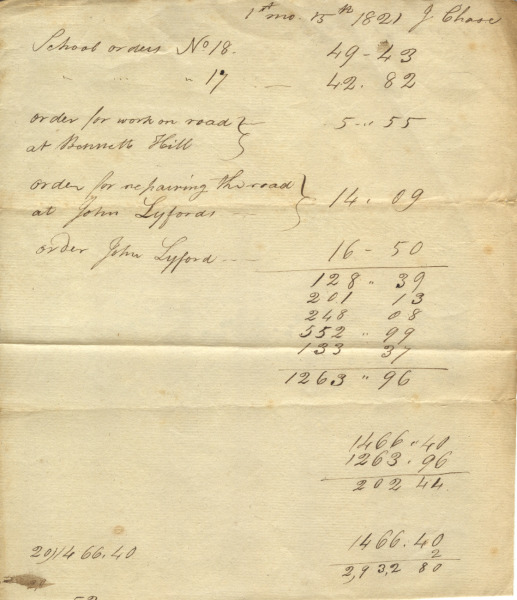 1st mo. 15th 1821 J Chase
School orders No 18. 49-43
" " " 17 42. 82
order for work on road
at Bennetts Hill 5 - 55
order for repairing the road
at John Lyfords 14. 09
order John Lyford 16-50
128 " 39
201 13
248 08
552 " 99
133 37
1263 " 96
1466 " 40
1263. 96
202 44
1466.40
2
2,932 80
20)1466.40